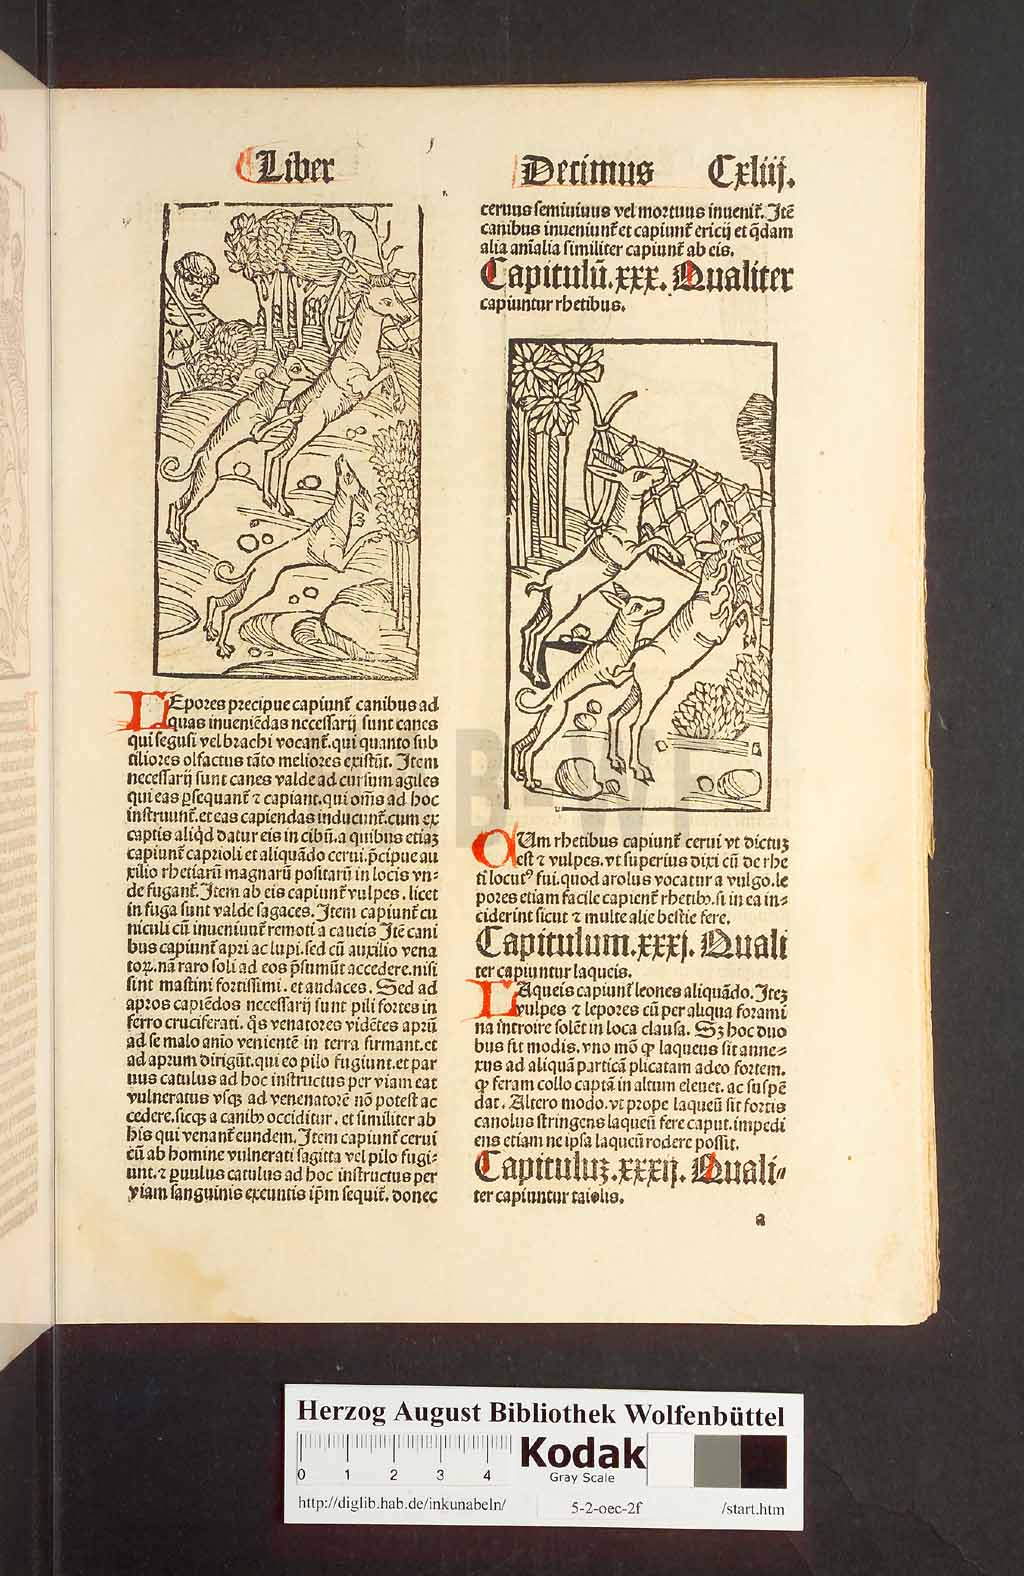 Liber Decimus Cxliij.
LEpores precipue capiunt̃ canibus ad
quas inueniẽdas necessarij sunt canes
qui segusi vel brachi vocant̃. qui quanto sub
tiliores olfactus tãto meliores existũt. Item
necessarij sunt canes valde ad cursum agiles
qui eas ꝑsequant̃ ⁊ capiant. qui om̃s ad hoc
instruunt̃. et eas capiendas inducunt̃. cum ex
captis aliq̇d datur eis in cibũ. a quibus etiaꝫ
capiunt̃ caprioli et aliquãdo cerui. p̃cipue au
xilio rhetiarũ magnarũ positarũ in locis vn⸗
de fugant̃. Item ab eis capiunt̃ vulpes. licet
in fuga sunt valde sagaces. Item capiunt̃ cu
niculi cũ inueniunt̃ remoti a caueis Itẽ cani
bus capiunt̃ apri ac lupi. sed cũ auxilio vena
toꝝ. nã raro soli ad eos p̃sumũt accedere. nisi
sint mastini fortissimi. et audaces. Sed ad
apros capiẽdos necessarij sunt pili fortes in
ferro cruciferati. q̇s venatores vidẽtes aprũ
ad se malo anio venientẽ in terra firmant. et
ad aprum dirigũt. qui eo pilo fugiunt. et par
uus catulus ad hoc instructus per viam eat
vulneratus vsqꝫ ad venenatorẽ nõ potest ac
cedere. sicqꝫ a canibꝰ occiditur. et similiter ab
his qui venant̃ eundem. Item capiunt̃ cerui
cũ ab homine vulnerati sagitta vel pilo fugi⸗
unt. ⁊ ꝑuulus catulus ad hoc instructus per
viam sanguinis exeuntis ip̃m sequit̃. donec
ceruus semiuiuus vel mortuus inuenit̃. Itẽ
canibus inueniunt̃ et capiunt̃ ericij et q̃dam
alia anĩalia similiter capiunt̃ ab eis.
Capitulũ. xxx. Qualiter
capiuntur rhetibus.
CUm rhetibus capiunt̃ cerui vt dictuꝫ
est ⁊ vulpes. vt superius dixi cũ de rhe
ti locutꝰ fui. quod arolus vocatur a vulgo. le
pores etiam facile capient̃ rhetibꝰ. si in ea in⸗
ciderint sicut ⁊ multe alie bestie fere.
Capitulum. xxxj. Quali
ter capiuntur laqueis.
LAqueis capiunt̃ leones aliquãdo. Iteꝫ
vulpes ⁊ lepores cũ per aliqua forami
na introire solẽt in loca clausa. Sꝫ hoc duo
bus fit modis. vno mõ ꝙ laqueus sit anne⸗
xus ad aliquã particã plicatam adeo fortem.
ꝙ feram collo captã in altum eleuet. ac suspẽ
dat. Altero modo. vt prope laqueũ sit fortis
canolus stringens laqueũ fere caput. impedi
ens etiam ne ipsa laqueũ rodere possit.
Capituluꝫ. xxxij. Quali⸗
ter capiuntur taiolis.
a
BLWF
Herzog August Bibliothek Wolfenbüttel
0 1 2 3 4
Kodak
Gray Scale
http://diglib.hab.de/inkunabeln/ 5-2-oec-2f /start.htm